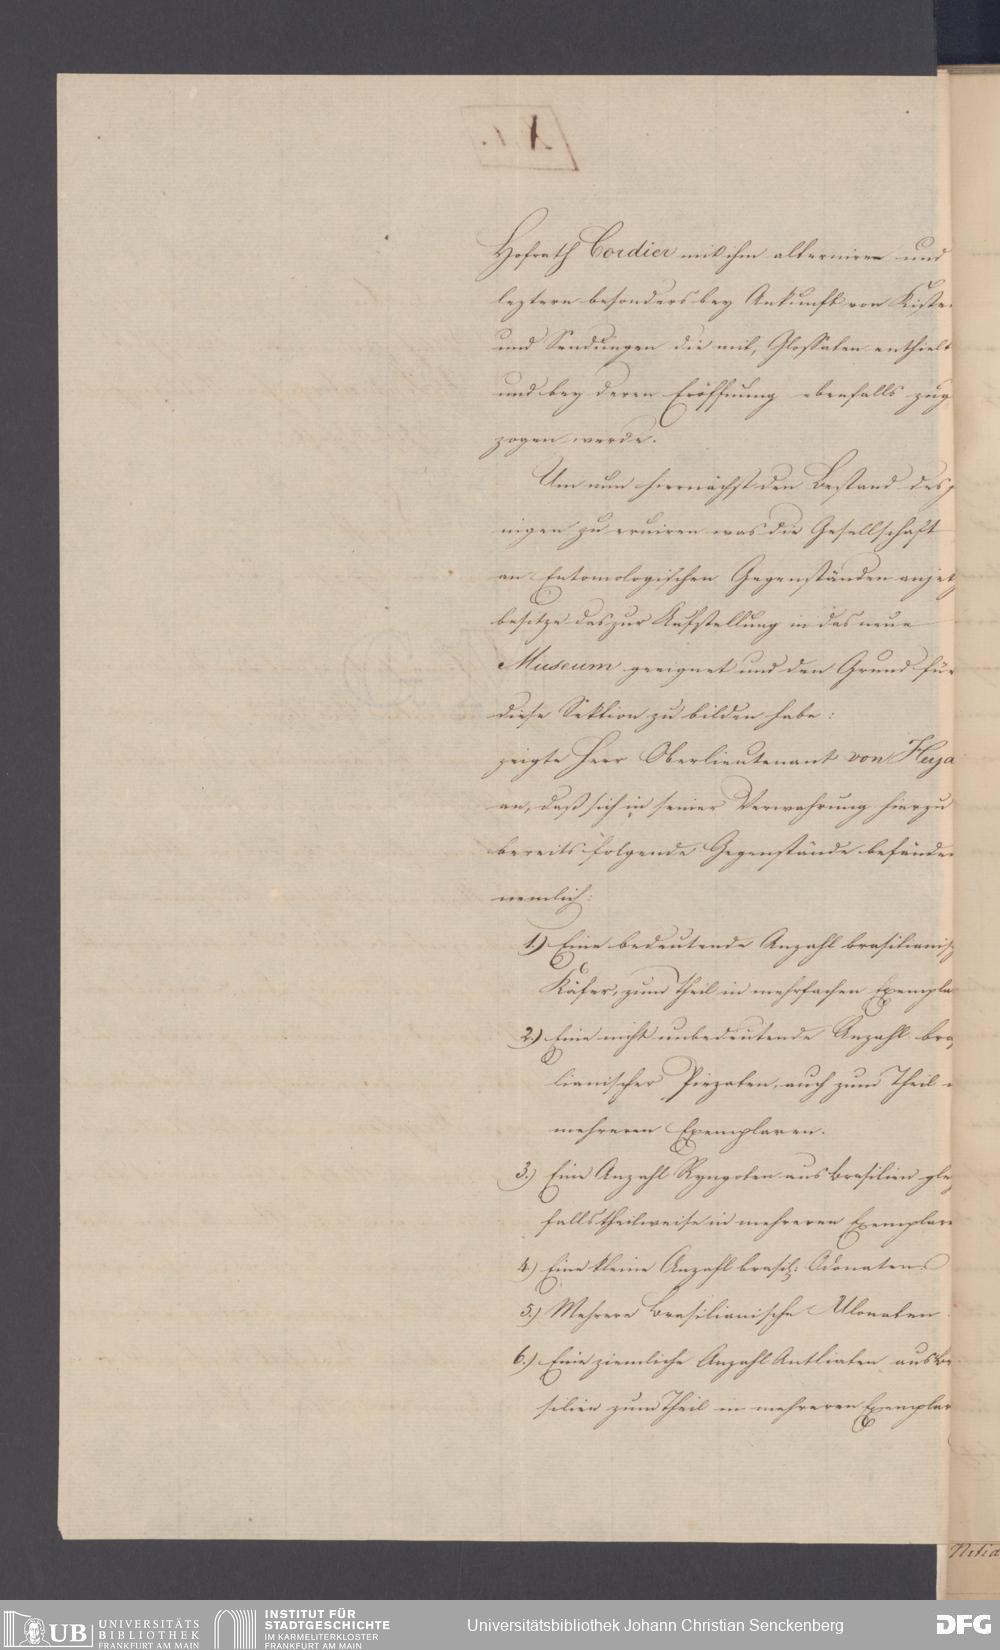 N. 1.
Hofrath Cordier mit ihm alternire und
leztern besonders bey Ankunft von Kiste
und Sendungen die mit, Glossaten enthielt
und bey deren Eröffnung ebenfalls zuge
zogen werde.
Um nun hiernächst den Bestand desj
nigen zu eruiren was die Gesellschaft
an Entomologischen Gegenständen anjetz
besitze das zur Aufstellung in das neue
Museum geeignet und den Grund für
diese Sektion zu bilden habe:
zeigte Herr Oberlieutenant von Heyd
an, daß sich in seiner Verwahrung hierzu
bereits folgende Gegenstände befänden
nemlich:
1.) Eine bedeutende Anzahl brasilianisch
Käfer, zum Theil in mehrfachen Exempla
2.) Eine nicht unbedeutende Anzahl bras
lianischer Piezaten, auch zum Theil
mehreren Exemplaren.
3.) Eine Anzahl Ryngoten aus Brasilien glei
falls theilweise in mehreren Exemplare
4.) Eine kleine Anzahl brasil: Odonaten
5.) Mehrere Brasilianische Ulonaten
6.) Eine ziemliche Anzahl Antliaten aus Br
silien zum Theil in mehreren Exemplar
UB UNIVERSITÄTS
BIBLIOTHEK
FRANKFURT AM MAIN
INSTITUT FÜR
STADTGESCHICHTE
IM KARMELITERKLOSTER
FRANKFURT AM MAIN
Universitätsbibliothek Johann Christian Senckenberg
DFG